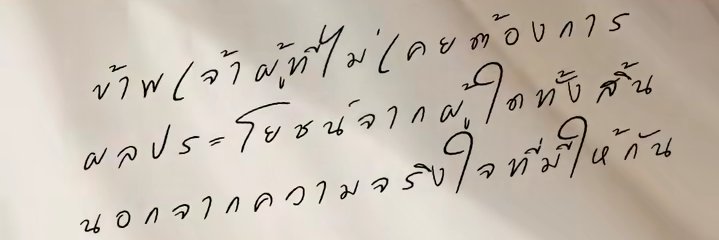 ข้าพเจ้าผู้ที่ไม่เคยต้องการ
ผลประโยชน์จากผู้ใดทั้งสิ้น
นอกจากความจริงใจที่มีให้กัน